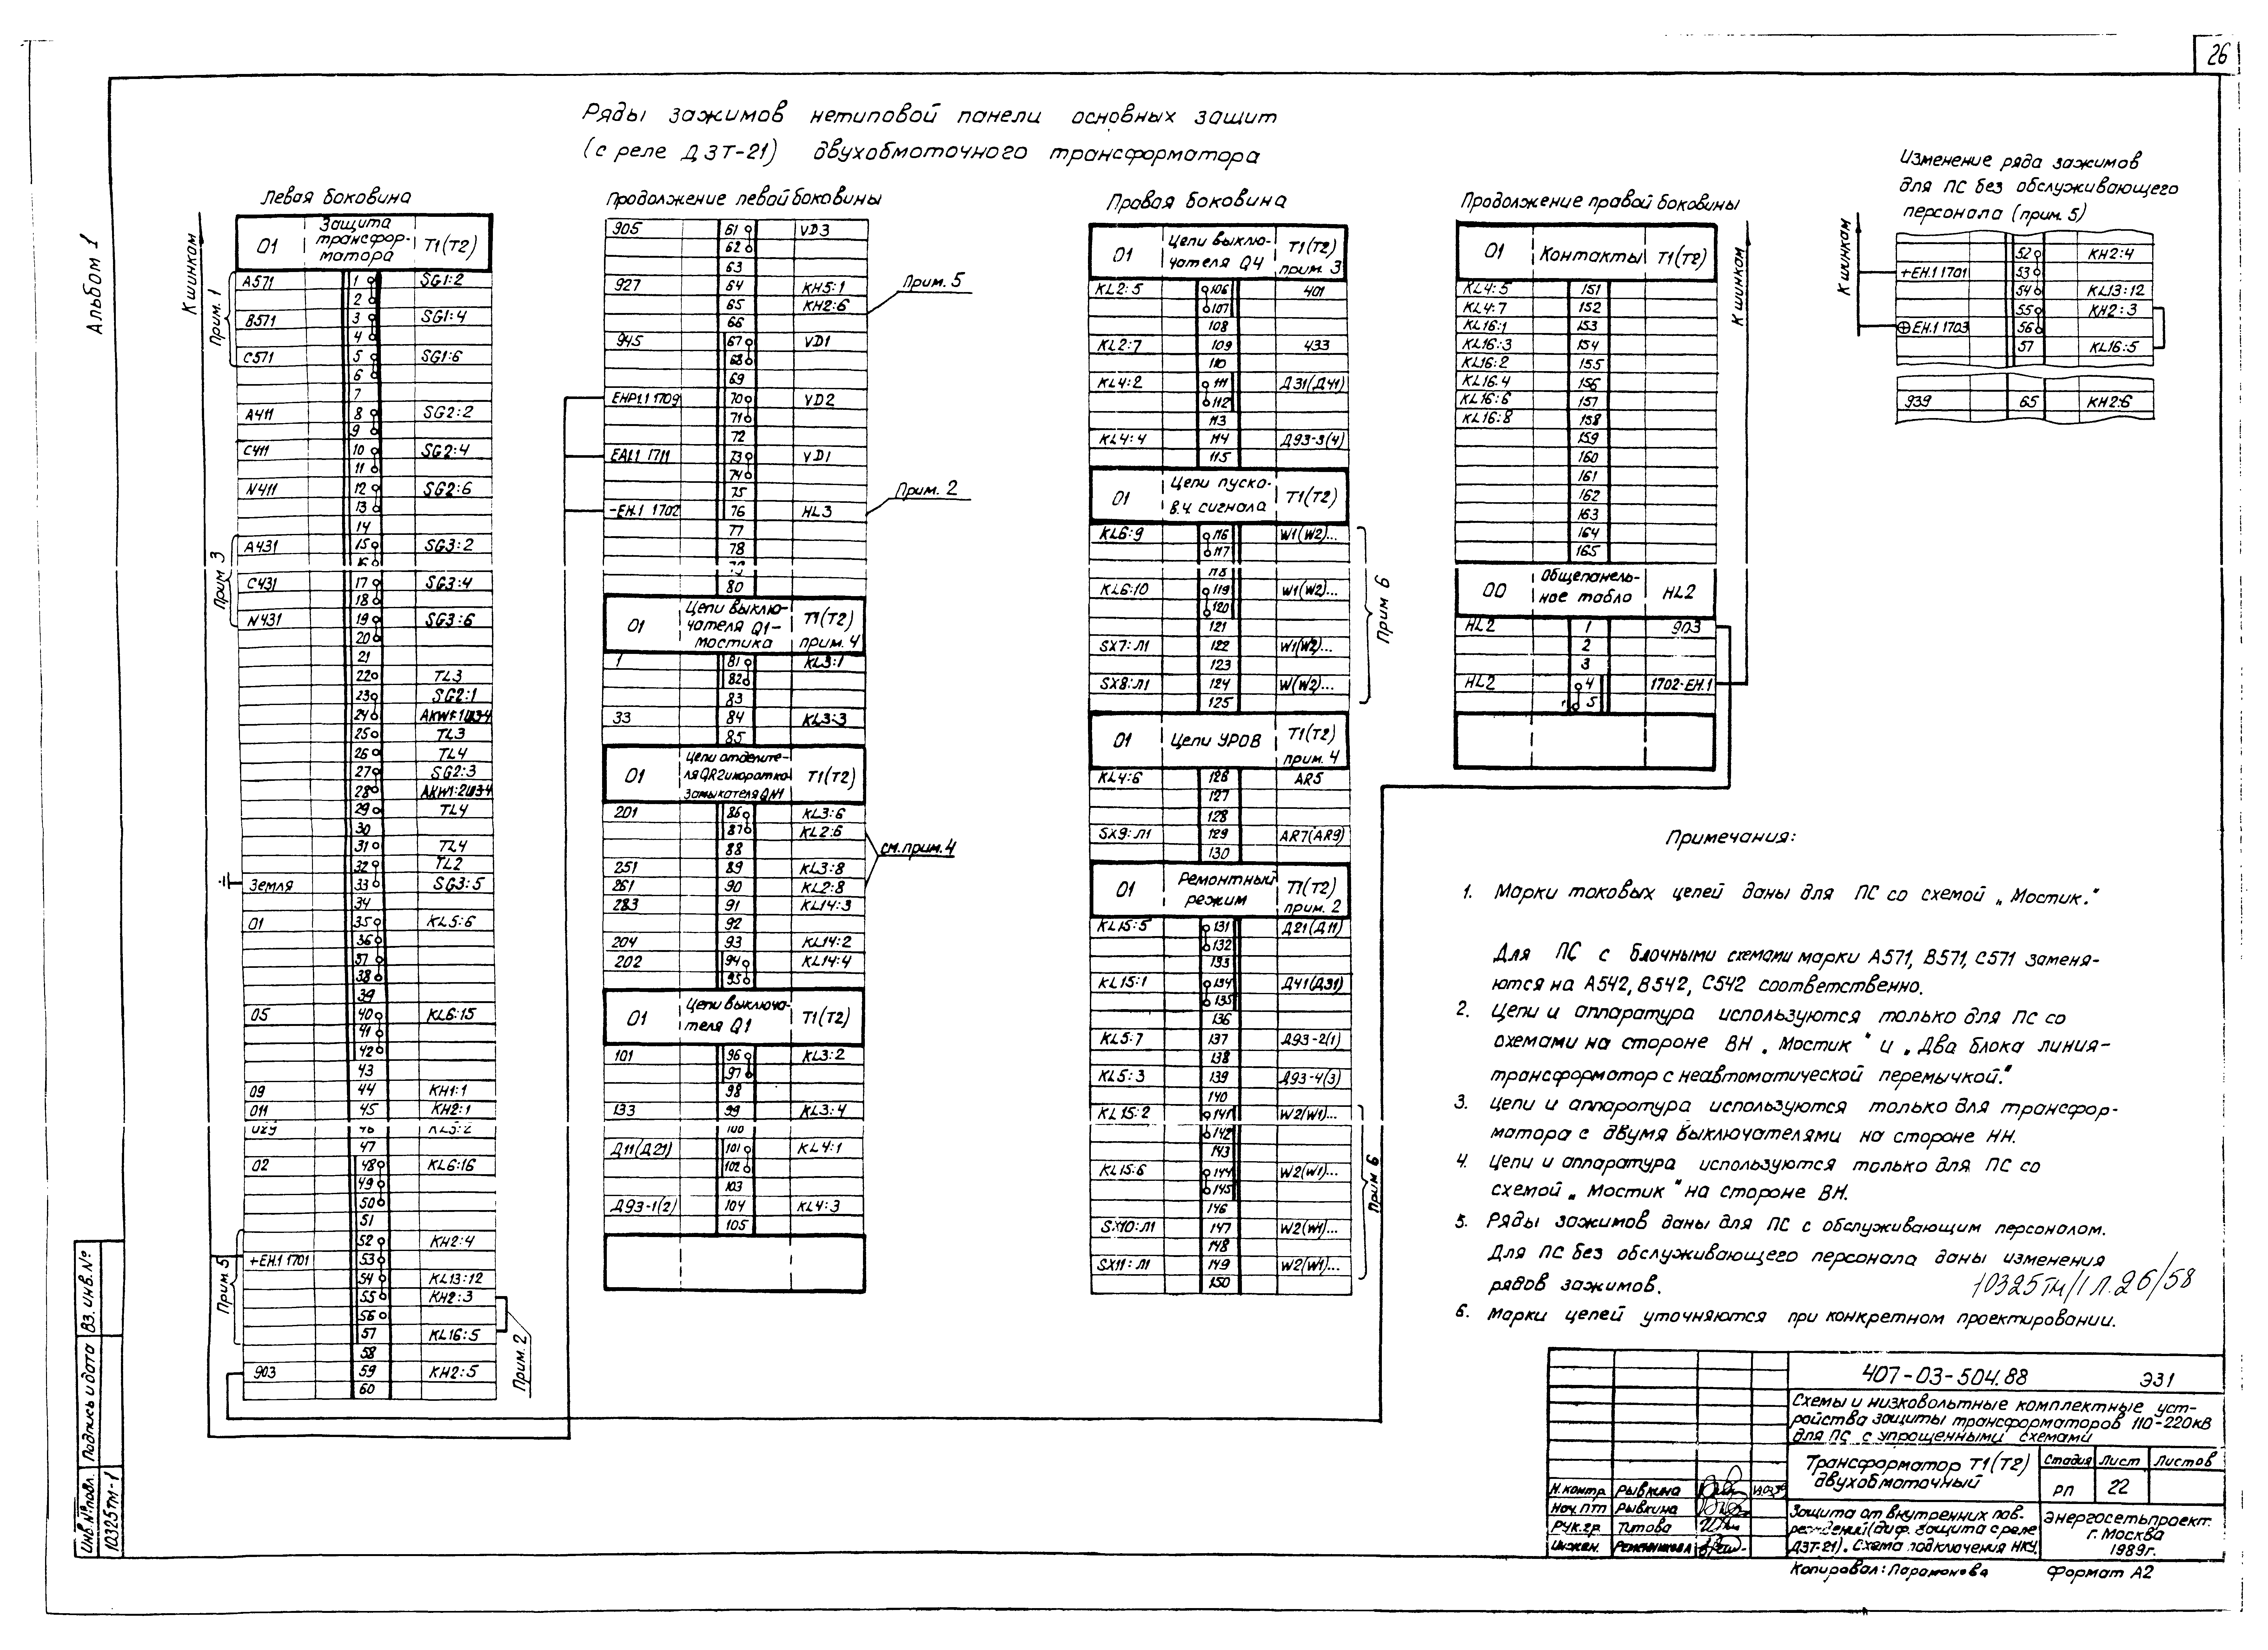 26
Альбом 1
Ряды зажимов нетиповой панели основных защит
(с реле ДЗТ-21) двухобмоточного трансформатора
Левая боковина
К шинкам
01 Защита трансфор-матора Т1(Т2)
Прим. 1
А571 1 SG1:2
2
В571 3 SG1:4
4
С571 5 SG1:6
6
7
А411 8 SG2:2
9
С411 10 SG2:4
11
N411 12 SG2:6
13
14
Прим 3
А431 15 SG3:2
16
С431 17 SG3:4
18
N431 19 SG3:6
20
21
22 TL3
23 SG2:1
24
25 TL3
26 TL4
27 SG2:3
28
29 TL4
30
31 TL4
32 TL2
Земля 33 SG3:5
34
01 35 KL5:6
36
37
38
39
05 40 KL6:15
41
42
43
09 44 KH1:1
011 45 KH2:1
029 46 KL5:2
47
02 48 KL6:16
49
50
51
Прим. 5
52 KH2:4
+ЕН.1 1701 53
54 KL13:12
55 KH2:3
56
57 KL16:5
Прим. 2
58
903 59 KH2:5
60
Продолжение левой боковины
905 61 VD3
62
63
927 64 KH5:1
65 KH2:6
Прим. 5
66
945 67 VD1
68
69
ЕНР1.1 1709 70 VD2
71
72
ЕА1.1 1711 73 VD1
74
75
-ЕН.1 1702 76 HL3
Прим. 2
77
78
79
80
01 Цепи выклю-чателя Q1-мостика Т1(Т2) прим. 4
1 81 KL3:1
82
83
33 84 KL3:3
85
01 Цепи отделите-ля QR2 и коротко-замыкателя QN1 Т1(Т2)
201 86 KL3:6
87 KL2:6
88
см. прим. 4
251 89 KL3:8
261 90 KL2:8
283 91 KL14:3
92
204 93 KL14:2
202 94 KL14:4
95
01 Цепи выключа-теля Q1 Т1(Т2)
101 96 KL3:2
97
98
133 99 KL3:4
100
Д11(Д21) 101 KL4:1
102
103
Д93-1(2) 104 KL4:3
105
Правая боковина
01 Цепи выклю-чателя Q4 Т1(Т2) прим. 3
KL2:5 106 401
107
108
KL2:7 109 433
110
KL4:2 111 Д31(Д41)
112
113
KL4:4 114 Д93-3(4)
115
01 Цепи пуска В.Ч. сигнала Т1(Т2)
KL6:9 116 W1(W2)...
117
118
KL6:10 119 W1(W2)...
120
121
SX7:Л1 122 W1(W2)...
123
SX8:Л1 124 W(W2)...
125
Прим 6
01 Цепи УРОВ Т1(Т2) прим. 4
KL4:6 126 AR5
127
128
SX9:Л1 129 AR7(AR9)
130
01 Ремонтный режим Т1(Т2) прим. 2
KL15:5 131 Д21(Д11)
132
133
KL15:1 134 Д41(Д31)
135
136
KL5:7 137 Д93-2(1)
138
KL5:3 139 Д93-4(3)
140
KL15:2 141 W2(W1)...
142
143
KL15:6 144 W2(W1)...
145
146
SX10:Л1 147 W2(W1)...
148
SX11:Л1 149 W2(W1)...
150
Прим 6
Продолжение правой боковины
К шинкам
01 Контакты Т1(Т2)
KL4:5 151
KL4:7 152
KL16:1 153
KL16:3 154
KL16:2 155
KL16.4 156
KL16:6 157
KL16:8 158
159
160
161
162
163
164
165
00 Общепанель-ное табло HL2
HL2 1 903
2
3
HL2 4 1702-ЕН.1
5
Изменение ряда зажимов
для ПС без обслуживающего
персонала (прим. 5)
К шинкам
52 KH2:4
+ЕН.1 1701 53
54 KL13:12
55 KH2:3
⊕ЕН.1 1703 56
57 KL16:5
939 65 KH2:6
Примечания:
1. Марки токовых цепей даны для ПС со схемой „Мостик."
Для ПС с блочными схемами марки А571, В571, С571 заменя-
ются на А542, В542, С542 соответственно.
2. Цепи и аппаратура используются только для ПС со
схемами на стороне ВН „Мостик" и „Два блока линия-
трансформатор с неавтоматической перемычкой."
3. Цепи и аппаратура используются только для трансфор-
матора с двумя выключателями на стороне НН.
4. Цепи и аппаратура используются только для ПС со
схемой „Мостик" на стороне ВН.
5. Ряды зажимов даны для ПС с обслуживающим персоналом.
Для ПС без обслуживающего персонала даны изменения
рядов зажимов.
10325тм/1 л.26/58
6. Марки цепей уточняются при конкретном проектировании.
407-03-504.88 ЭЗ1
Схемы и низковольтные комплектные уст-
ройства защиты трансформаторов 110-220кВ
для ПС с упрощенными схемами
Трансформатор Т1(Т2)
двухобмоточный
Стадия Лист Листов
РП 22
Н.контр. Рывкина
Нач. ПТП Рывкина
Рук.гр. Титова
Инжен.
Защита от внутренних пов-
реждений (диф. защита с реле
ДЗТ-21). Схема подключения НКУ.
Энергосетьпроект
г. Москва
1989г.
Копировал: Парамонова Формат А2
Инв.№подл. Подпись и дата Вз. инв.№
10325тм-1